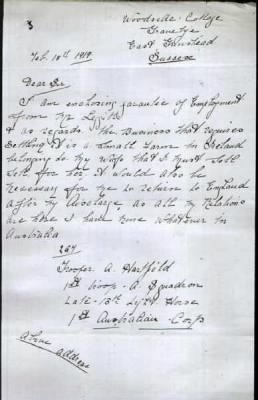 3
Woodside College
East Grinstead
Sussex
Feb. 10th 1919
Dear Sir
I am enclosing Guarantee of Employment
from my
& as regards the Business that requires
Settling it is a small Farm in Ireland
belonging to my wife that I must
Sell for her. it would also be
Necessary for me to return to England
after my discharge as all my Relations
are here I have none whatever in
Australia
267
Trooper A. Hartfield
1st Troop - A. Squadron
Late - 13th Light Horse
1st Australian Corps
Above address